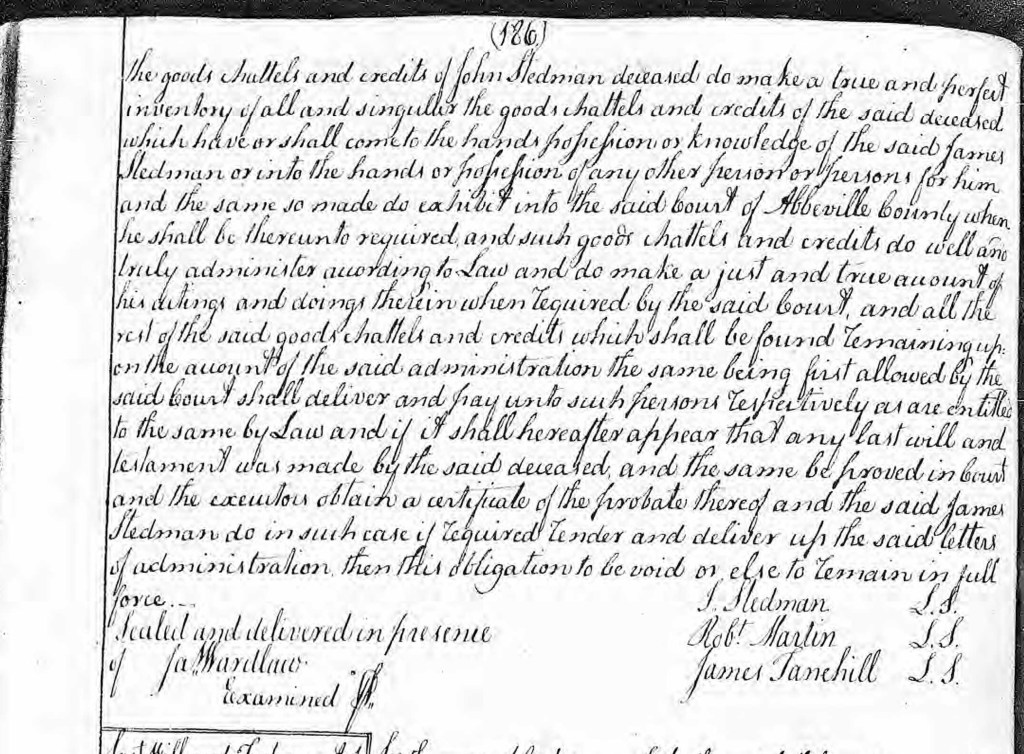 (186)
the goods chattels and credits of John Sledman deceased do make a true and perfect
inventory of all and singuller the goods chattels and credits of the said deceased
which have or shall come to the hands possession or knowledge of the said James
Sledman or into the hands or possession of any other person or persons for him
and the same so made do exhibit into the said Court of Abbeville County when
he shall be thereunto required, and such goods chattels and credits do well and
truly administer according to Law and do make a just and true account of
his actings and doings therein when required by the said Court, and all the
rest of the said goods chattels and credits which shall be found remaining up:
on the account of the said administration the same being first allowed by the
said Court shall deliver and pay unto such persons respectively as are entitled
to the same by Law and if it shall hereafter appear that any last will and
testament was made by the said deceased, and the same be proved in Court
and the executors obtain a certificate of the probate thereof and the said James
Sledman do in such case if required render and deliver up the said letters
of administration, then this obligation to be void or else to remain in full
force. J. Sledman L.S.
Sealed and delivered in presence Robt. Martin L.S.
of Jas. Wardlaw James Tanehill L.S.
Examined